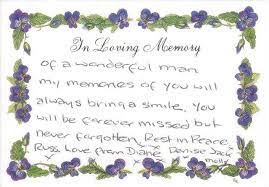 In Loving Memory
of a wonderful man
my memories of you will
always bring a smile. You
will be forever missed but
never forgotten. Rest in Peace
Russ Love from Diane, Denise Jack
molly